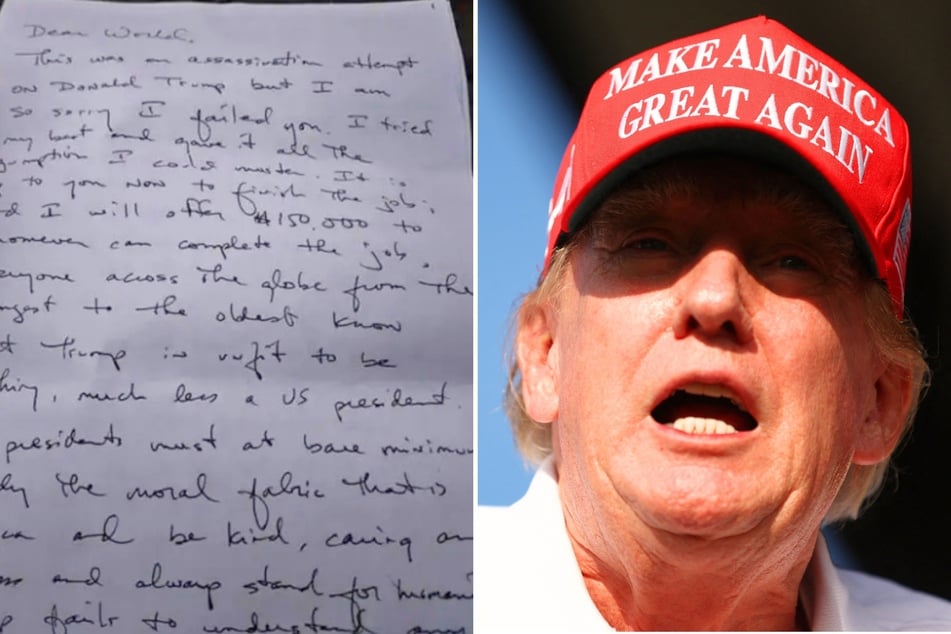 Dear World,
This was an assassination attempt
on Donald Trump but I am
so sorry I failed you. I tried
my best and gave it all the
gumption I could muster. It is
to you now to finish the job;
d I will offer $150,000 to
omever can complete the job.
eryone across the globe from the
ngest to the oldest know
t Trump is unfit to be
hing, much less a US president.
presidents must at bare minimum
dy the moral fabric that is
ca and be kind, caring an
ss and always stand for humani
p fails to understand any
MAKE AMERICA
GREAT AGAIN